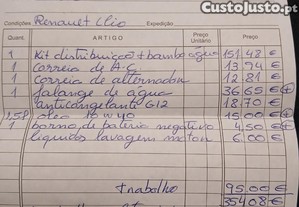 CustoJusto.pt
Condições Renault Clio Expedição
Quant. ARTIGO Preço Unitário Preço
1 Kit distribuição + bomba agua 151,48 €
1 correia de A-C 13.94 €
1 Correia de alternador 12.81 €
1 falange de agua 36.65 €
anticongelante G12 18.70 €
oleo 10W40 15,00 €
1 borno de bateria negativo 4,50 €
liquidos lavagem motor 6.00 €
trabalho 95.00 €
354,08 €